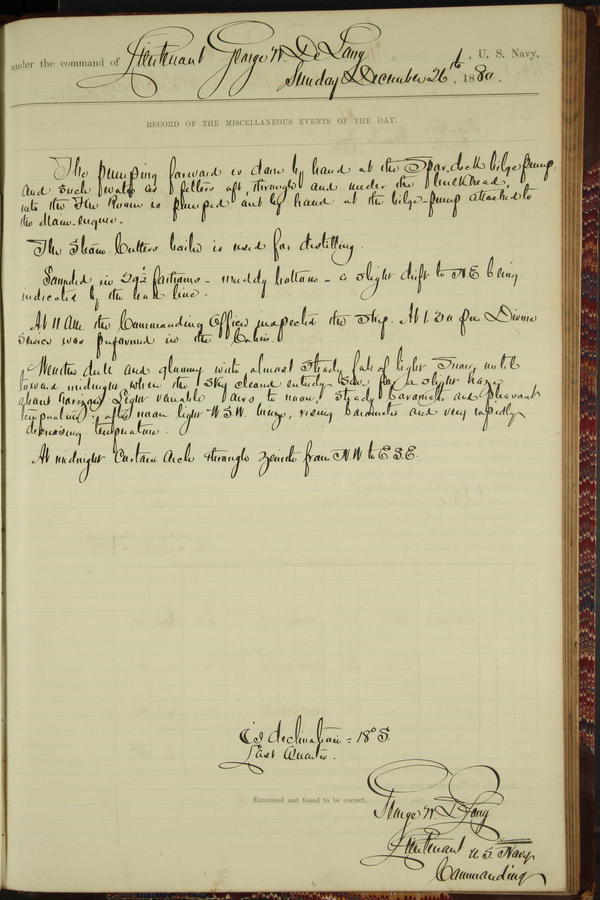 under the command of Lieutenant George W. De Long, U. S. Navy,
Sunday December 26th, 1880.
RECORD OF THE MISCELLANEOUS EVENTS OF THE DAY.
The pumping forward is done by hand at the Spar deck bilge pump,
and such water as filters aft, through and under the bulkhead,
into the Fire Room is pumped out by hand at the bilge-pump attached to
the Main engine.
The Steam Cutters boiler is used for distilling.
Sounded in 29½ fathoms - muddy bottom - a slight drift to NE being
indicated by the lead line.
At 11 AM. the Commanding Officer inspected the Ship. At 1. PM Divine
Service was performed in the Cabin.
Weather dull and gloomy with almost steady fall of light Snow, until
toward midnight, when the sky cleared entirely save for a slight haze
about horizon. Light variable airs to noon, steady barometer and pleasant
temperature; after noon light WSW breeze, rising barometer and very rapidly
decreasing temperature.
At midnight Curtain Arch through zenith from NW to ESE.
declination = 18° S.
Last Quarter.
Examined and found to be correct.
George W. De Long
Lieutenant U.S. Navy
Commanding